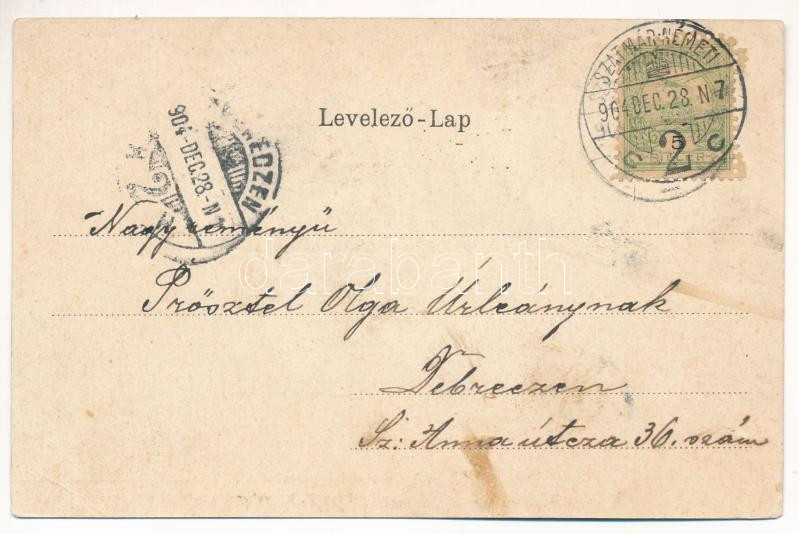 Levelező-Lap
SZATMÁR-NÉMETI
904 DEC. 28. N 7
C C
5
2
904 DEC. 28. N 1
Nagy reményű
Prősztel Olga Úrleánynak
Debreczen
Sz: Anna útcza 36. szám
darabanth